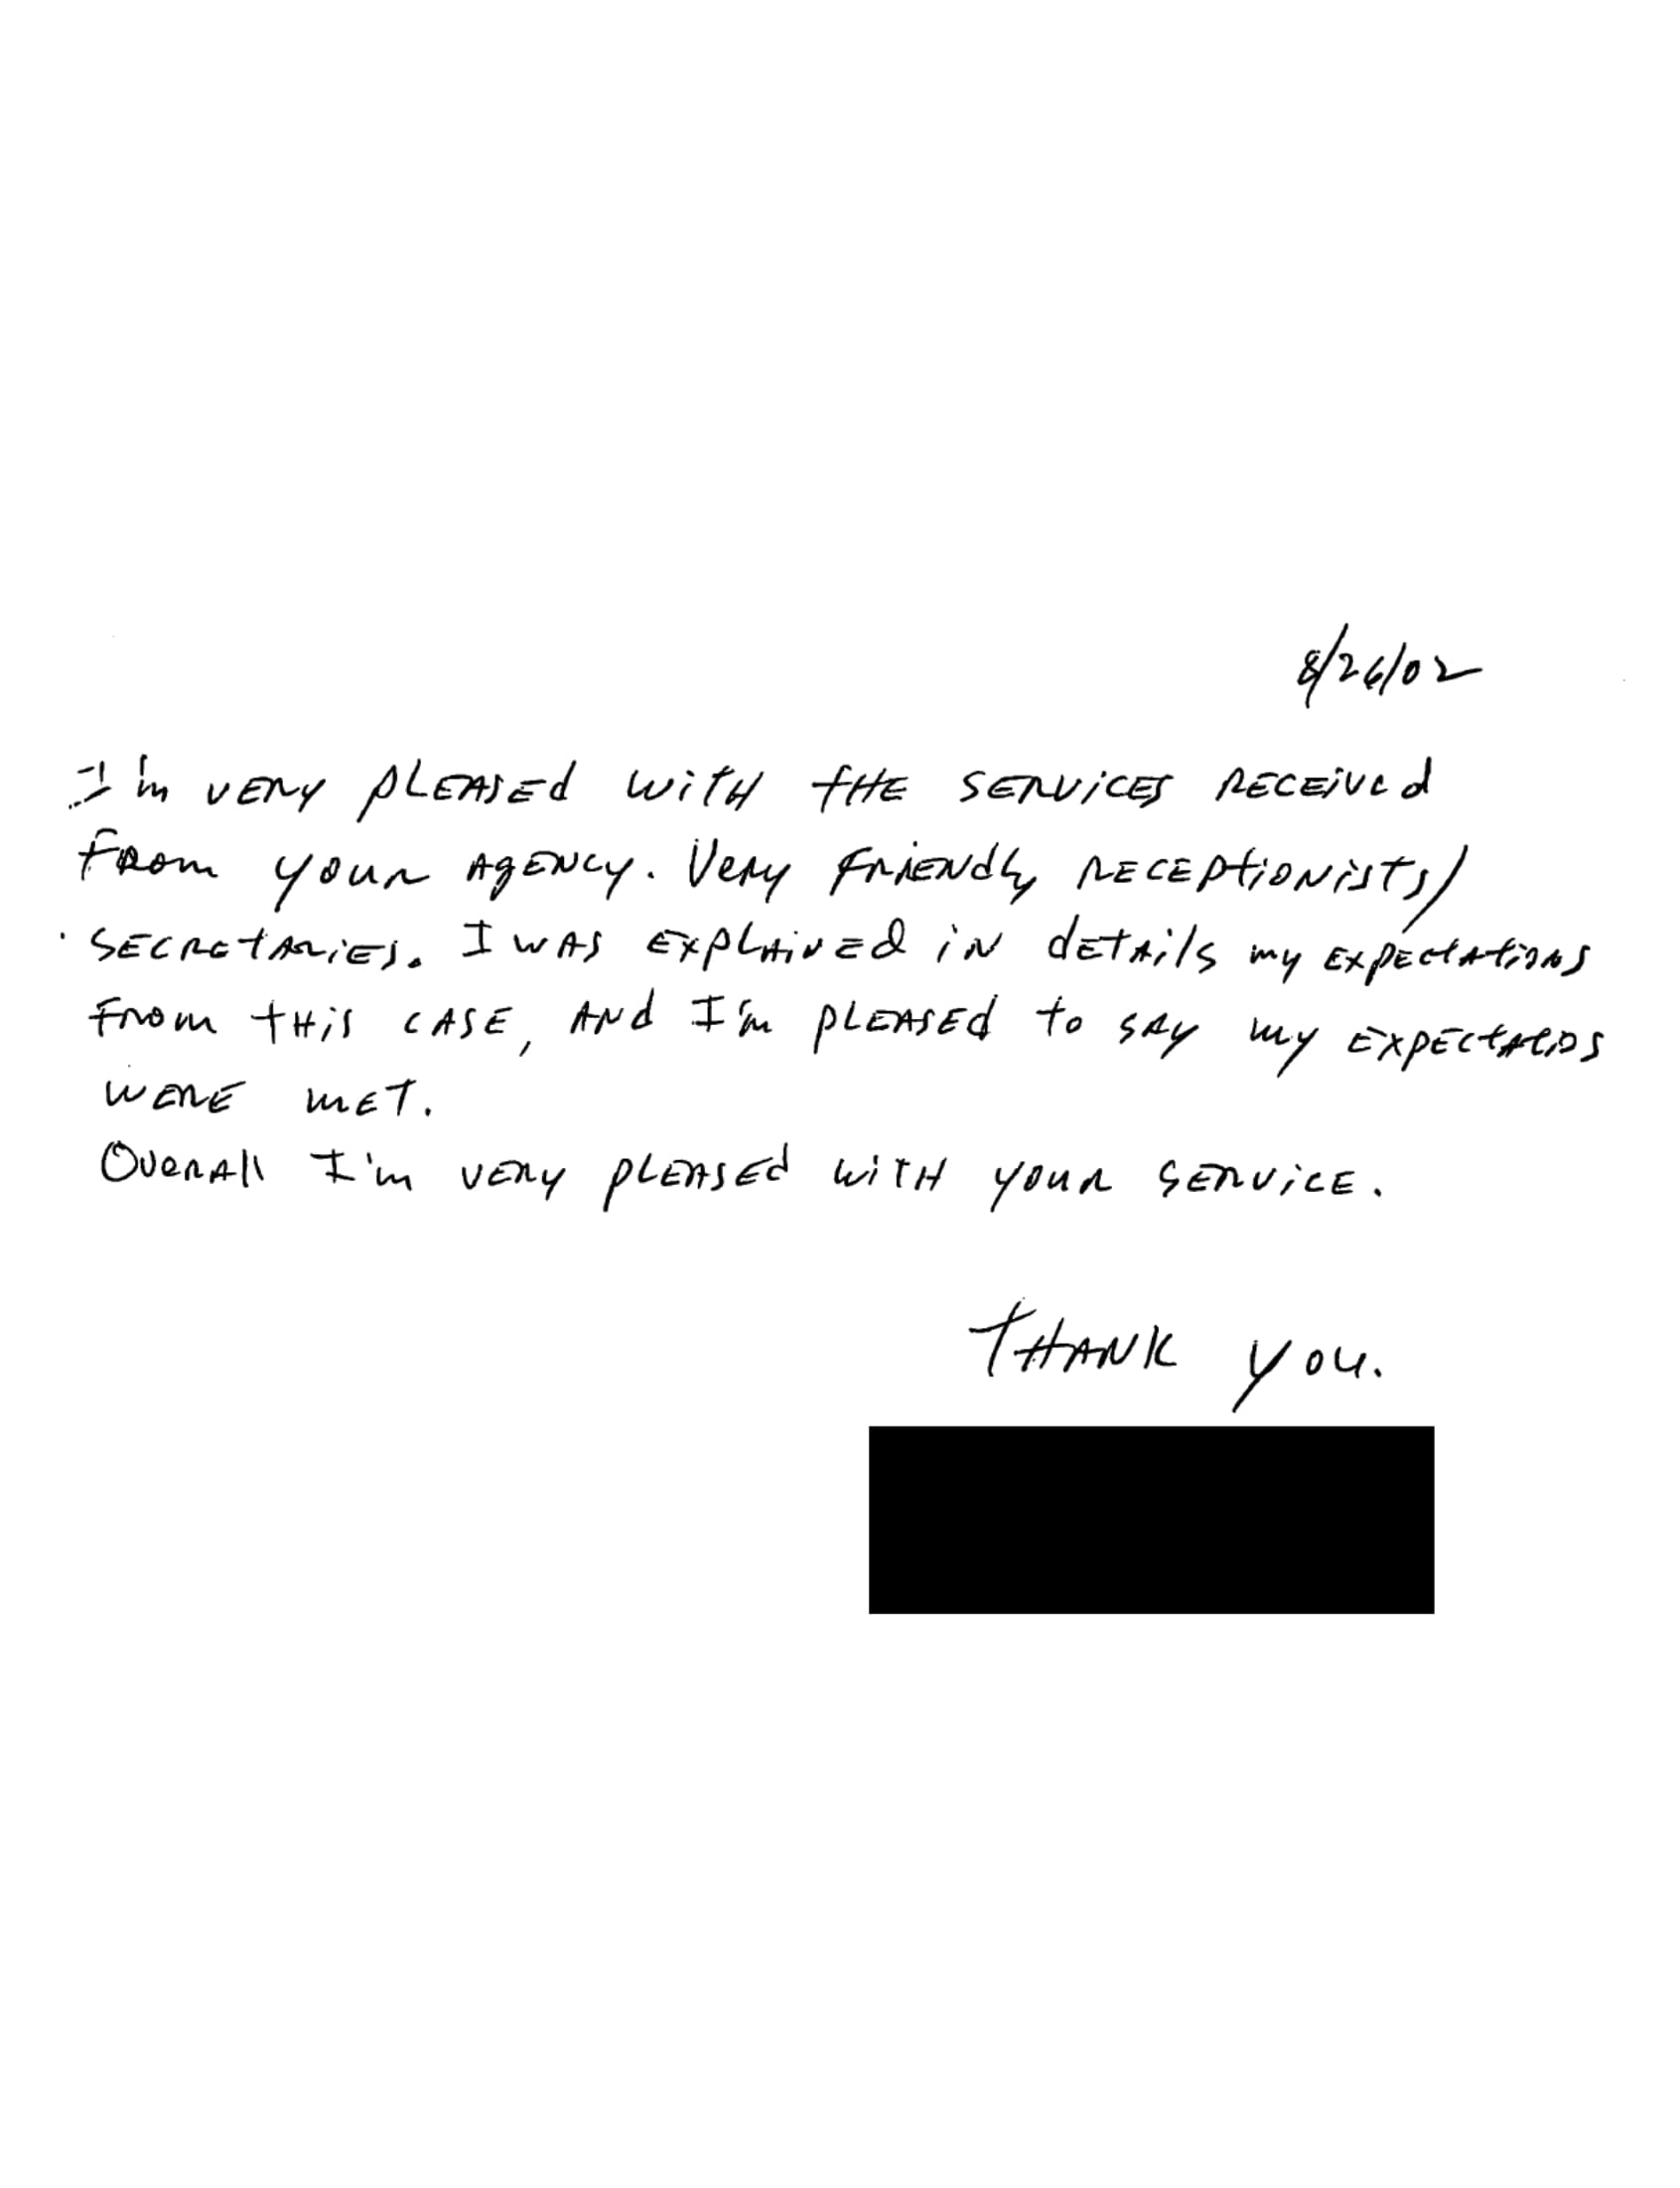 8/26/02
I'm very pleased with the services received
from your agency. Very friendly receptionists/
secretaries. I was explained in details my expectations
from this case, and I'm pleased to say my expectatios
were met.
Overall I'm very pleased with your service.
Thank you.